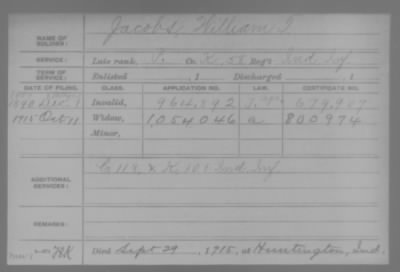 NAME OF SOLDIER: Jacobs, William T.
SERVICE: Late rank, P. Co. K, 58 Reg't Ind Inf
TERM OF SERVICE: Enlisted , 1 Discharged , 1
DATE OF FILING. CLASS. APPLICATION NO. LAW. CERTIFICATE NO.
1890 Dec 1 Invalid, 964,892 679,907
1915 Oct 11 Widow, 1,054,046 a 800974
Minor,
ADDITIONAL SERVICES: Co K, 101 Ind Inf
REMARKS:
Died Sept 29, 1915, at Huntington, Ind.